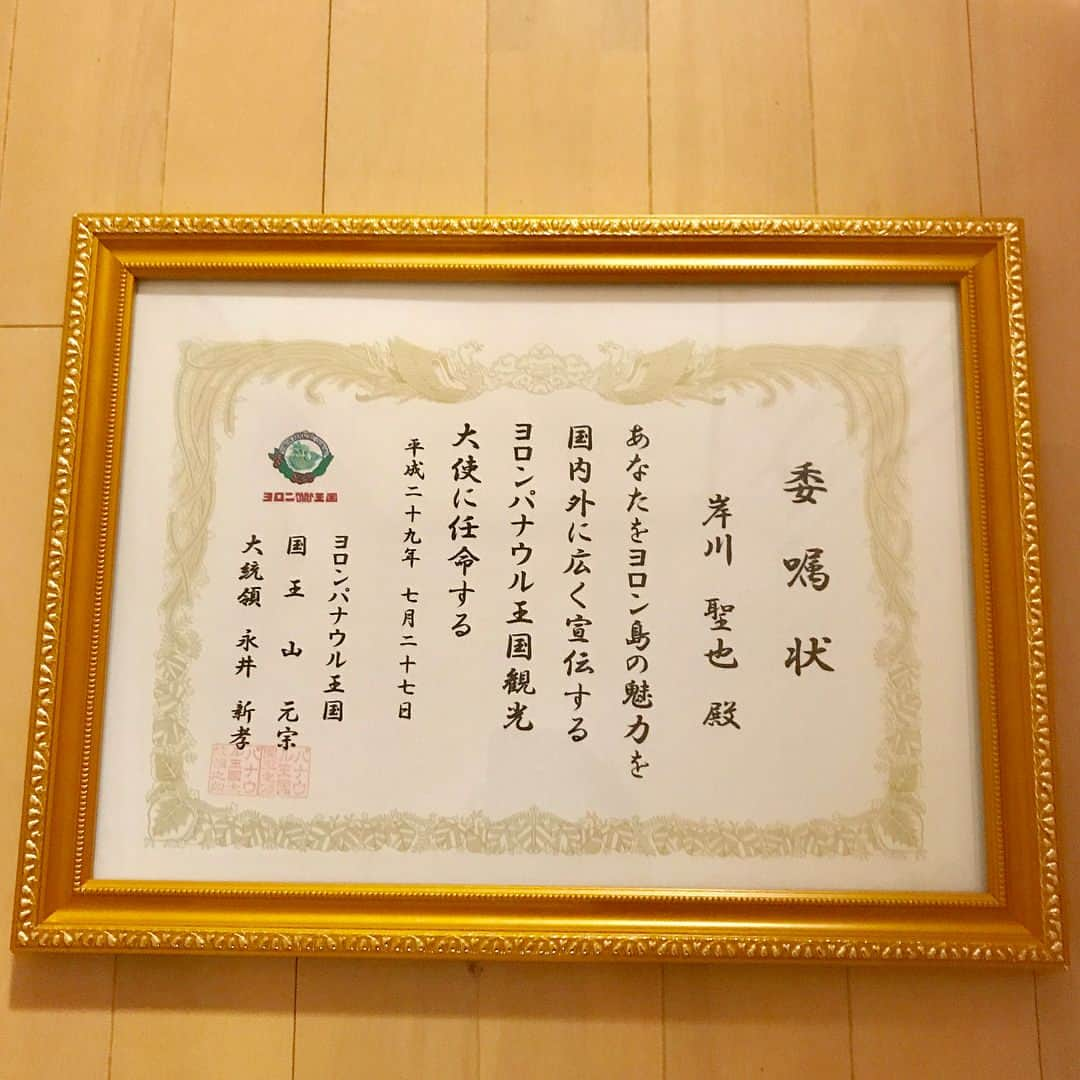 委嘱状
岸川 聖也 殿
あなたをヨロン島の魅力を
国内外に広く宣伝する
ヨロンパナウル王国観光
大使に任命する
平成二十九年 七月二十七日
ヨロンパナウル王国
国王 山 元宗
大統領 永井 新孝